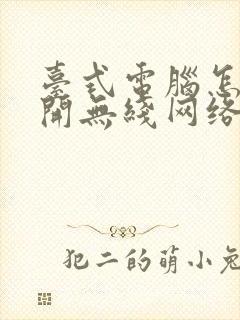 臺式電腦怎
開無綫网络
犯二的萌小兔